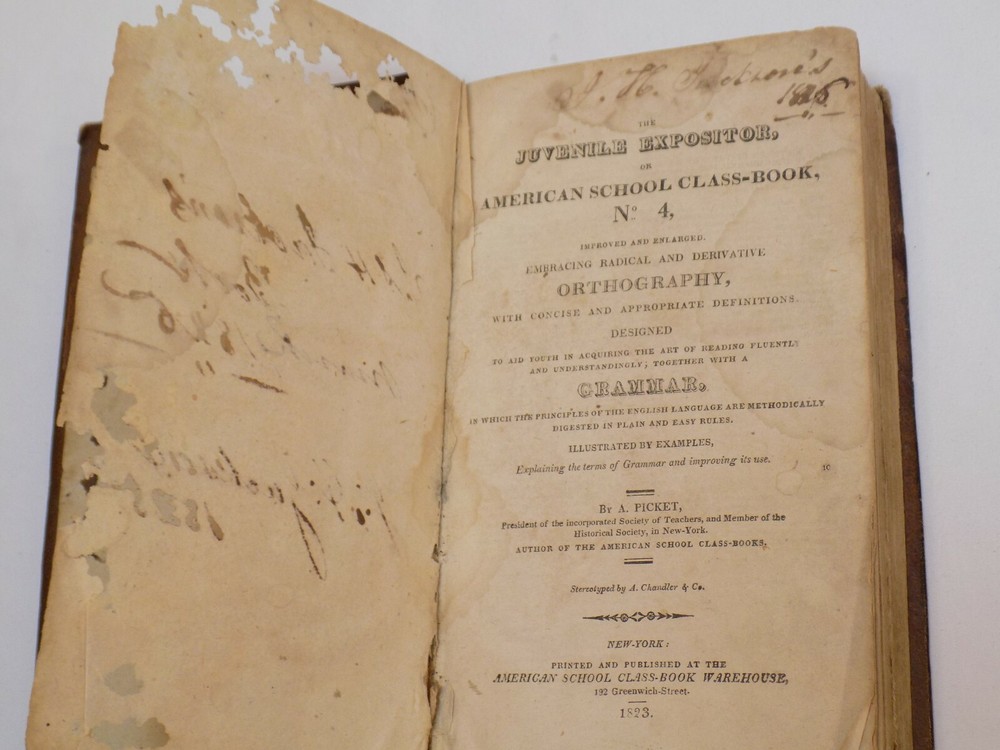 THE
JUVENILE EXPOSITOR,
OR
AMERICAN SCHOOL CLASS-BOOK,
No 4,
IMPROVED AND ENLARGED.
EMBRACING RADICAL AND DERIVATIVE
ORTHOGRAPHY,
WITH CONCISE AND APPROPRIATE DEFINITIONS.
DESIGNED
TO AID YOUTH IN ACQUIRING THE ART OF READING FLUENTLY
AND UNDERSTANDINGLY; TOGETHER WITH A
GRAMMAR,
IN WHICH THE PRINCIPLES OF THE ENGLISH LANGUAGE ARE METHODICALLY
DIGESTED IN PLAIN AND EASY RULES.
ILLUSTRATED BY EXAMPLES,
Explaining the terms of Grammar and improving its use.
By A. PICKET,
President of the incorporated Society of Teachers, and Member of the
Historical Society, in New-York.
AUTHOR OF THE AMERICAN SCHOOL CLASS-BOOKS.
Stereotyped by A. Chandler & Co.
NEW-YORK:
PRINTED AND PUBLISHED AT THE
AMERICAN SCHOOL CLASS-BOOK WAREHOUSE,
192 Greenwich-Street.
1823.